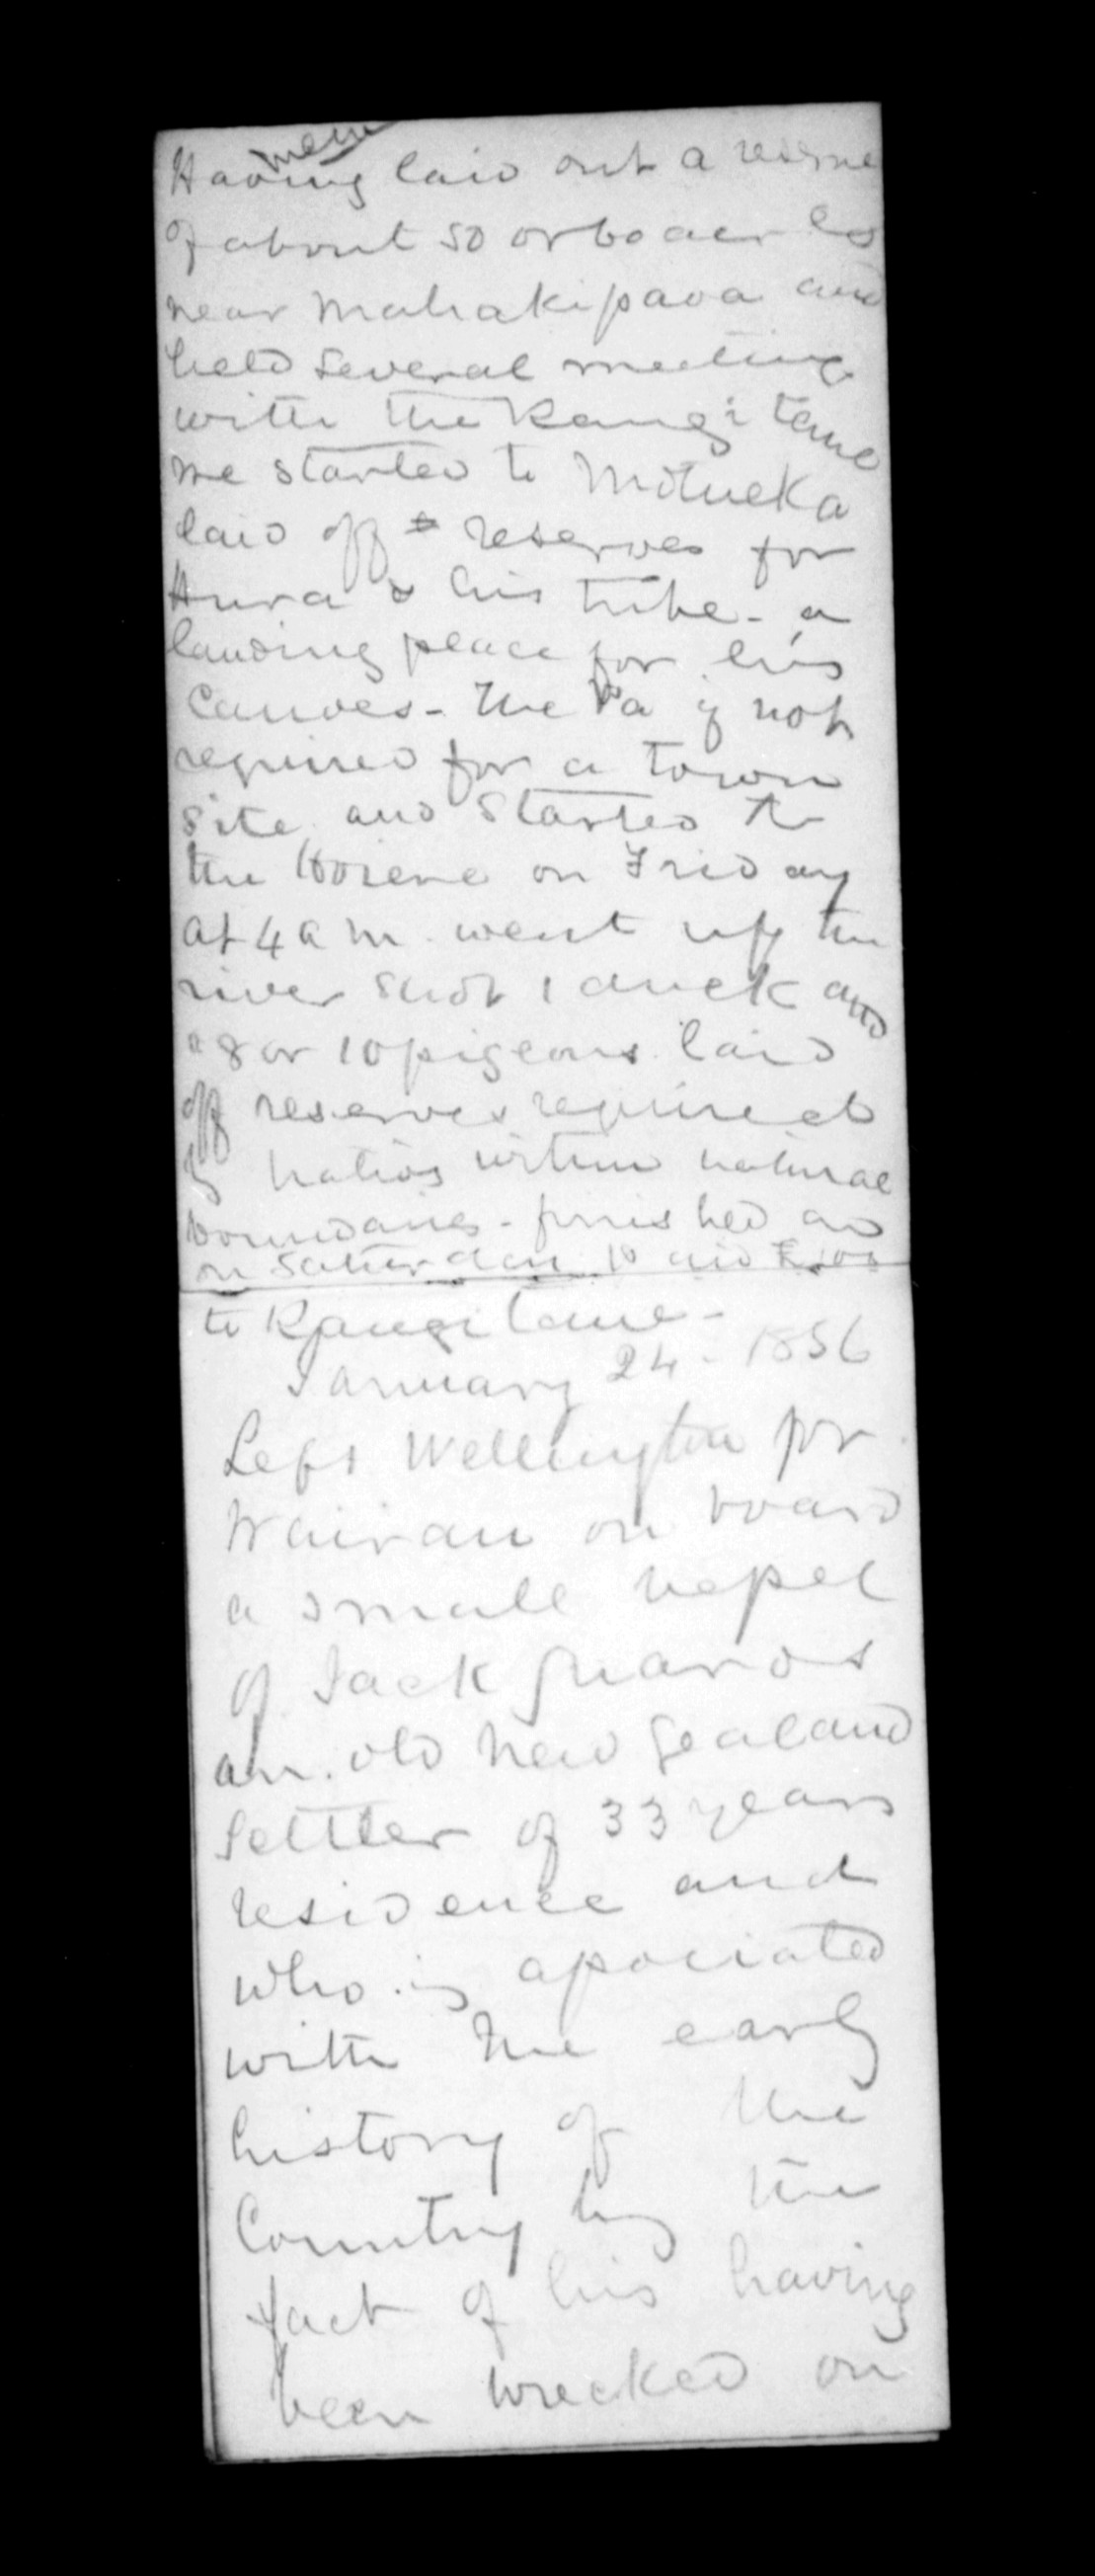 mem
Having laid out a reserve
of about 50 or 60 acres
near Mahakipawa and
held several meetings
with the Rangitane
we started to Motueka
laid off reserves for
Hura & his tribe - a
landing place for his
Canoes - The Pa if not
required for a town
site and started to
the Hoiere on Friday
at 4 am. went up the
river shot 1 duck and
8 or 10 pigeons laid
off reserves required
by natives within natural
boundaries - finished
on Saturday paid £100
to Rangitane -
January 24 - 1856
Left Wellington for
Wairau on board
a small vessel
of Jack Guards
an old New Zealand
Settler of 33 years
residence and
who is associated
with the early
history of the
Country by the
fact of his having
been wrecked on